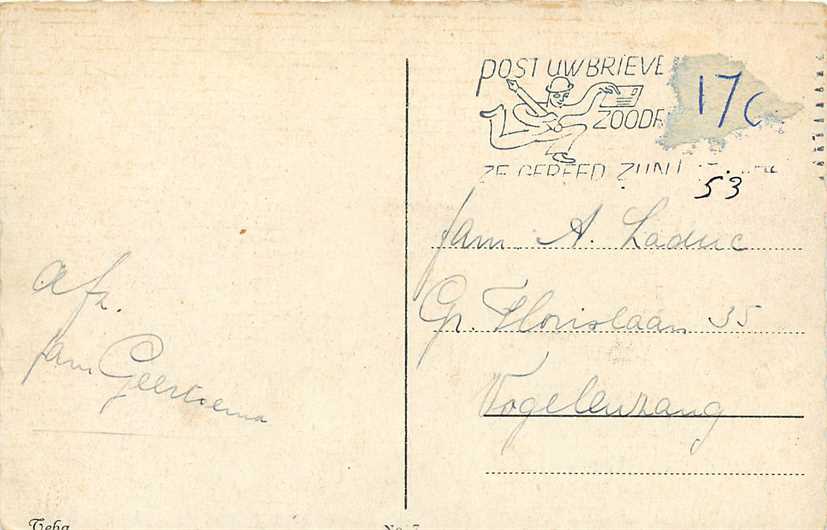 POST UW BRIEVE
ZOODR
ZE GEREED ZIJN!
17 c
53
fam A. Laduc
Gr. Florislaan 35
Vogelenzang
Afz.
fam Geertsema
Teba
No 7